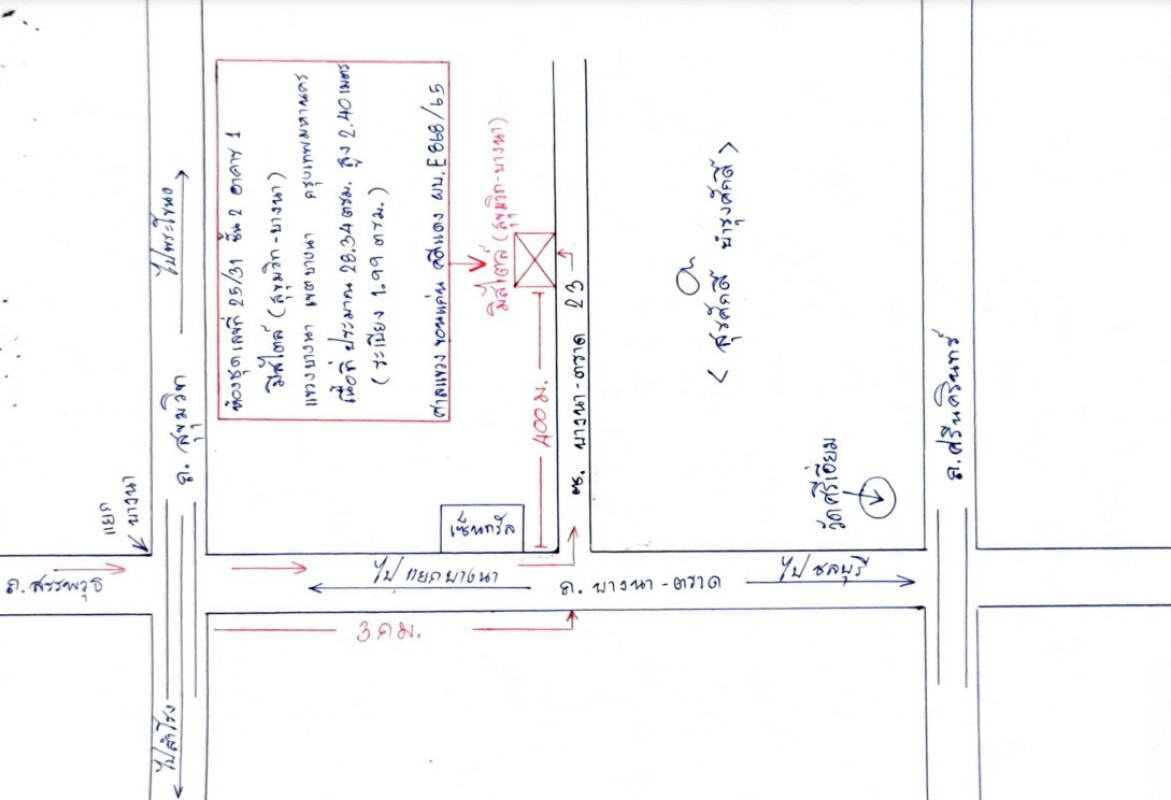 ห้องชุดเลขที่ 25/31 ชั้น 2 อาคาร 1
มีสไตล์ (สุขุมวิท-บางนา)
แขวงบางนา เขตบางนา กรุงเทพมหานคร
เนื้อที่ ประมาณ 28.34 ตรม. สูง 2.40 เมตร
(ระเบียง 1.99 ตรม.)
ศาลแขวง ขอนแก่น คดีแดง ผบ.E 868/65
มีสไตล์ (สุขุมวิท-บางนา)
ไปพระโขนง
ถ. สุขุมวิท
แยก
บางนา
ถ. สรรพาวุธ
ไปสำโรง
400 ม.
ซ. บางนา-ตราด 23
เซ็นทรัล
ไป แยกบางนา
ถ. บางนา-ตราด
ไป ชลบุรี
3 กม.
< สุรศักดิ์ บำรุงศักดิ์ >
วัดศรีเอี่ยม
ถ.ศรีนครินทร์